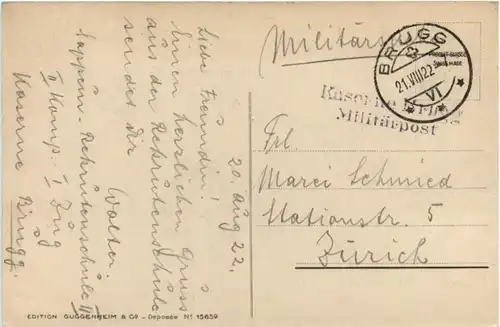 20. Aug 22.
Liebe Freundin!
Einen herzlichen Gruss
aus der Rekrutenschule
sendet Dir
Walter.
Sappeur-Rekrutenschule II
II Komp. I Zug
Kaserne Brugg.
EDITION GUGGENHEIM & Co - Deposée No 15659
Militärs
BRUGG
21.VIII.22
VI
Kaserne
Militärpost
Frl.
Marei Schmied
Stationstr. 5
Zürich